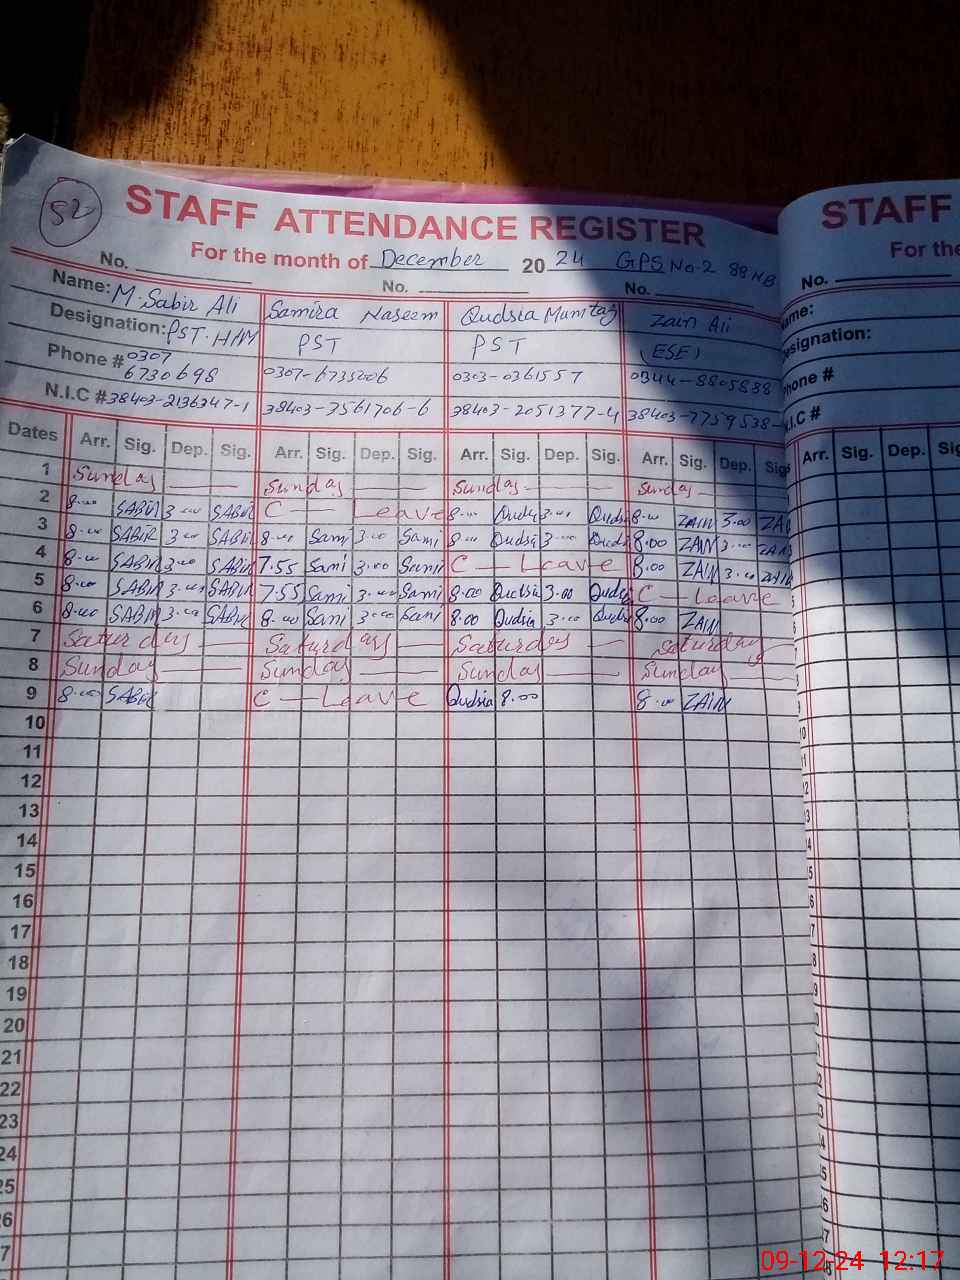 52
STAFF ATTENDANCE REGISTER
STAFF
For the month of December 2024 GPS No-2 88 NB
For the
No. No. No. No.
Name: M. Sabir Ali Samira Naseem Qudsia Mumtaz Zain Ali
Designation: PST. H/M PST PST (ESE)
Phone # 0307 6730698 0307-6735006 0303-0361557 0344-8805838
N.I.C # 38403-2136247-1 38403-3561706-6 38403-2051377-4 38403-7759538-
ame:
esignation:
hone #
.I.C #
Dates Arr. Sig. Dep. Sig. Arr. Sig. Dep. Sig. Arr. Sig. Dep. Sig. Arr. Sig. Dep. Sig Arr. Sig. Dep. Sig
1 Sunday Sunday Sunday Sunday
2 8.00 SABIR 3.00 SABIR C — Leave 8.00 Qudsia 3.00 Qudsia 8.00 ZAIN 3.00 ZAI
3 8.00 SABIR 3.00 SABIR 8.00 Sami 3.00 Sami 8.00 Qudsia 3.00 Qudsia 8.00 ZAIN 3.00 ZAIN
4 8.00 SABIR 3.00 SABIR 7.55 Sami 3.00 Sami C — Leave 8.00 ZAIN 3.00 ZAIN
5 8.00 SABIR 3.00 SABIR 7.55 Sami 3.00 Sami 8.00 Qudsia 3.00 Qudsia C — Leave
6 8.00 SABIR 3.00 SABIR 8.00 Sami 3.00 Sami 8.00 Qudsia 3.00 Qudsia 8.00 ZAIN
7 Saturday Saturday Saturday Saturday
8 Sunday Sunday Sunday Sunday
9 8.00 SABIR C — Leave Qudsia 8.00 8.00 ZAIN
10
11
12
13
14
15
16
17
18
19
20
21
22
23
24
25
26
7
09-12-24 12:17